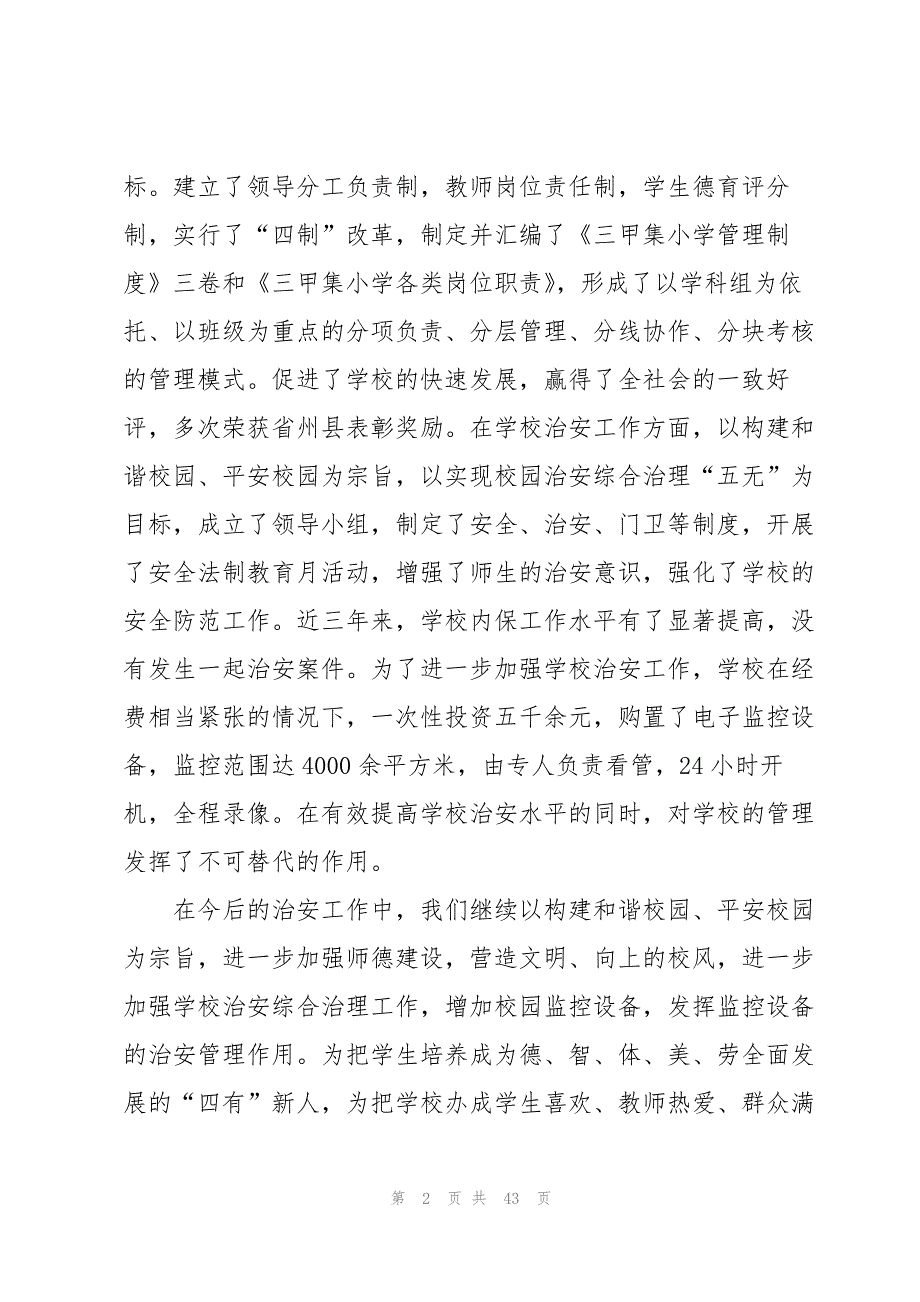 标。建立了领导分工负责制，教师岗位责任制，学生德育评分
制，实行了“四制”改革，制定并汇编了《三甲集小学管理制
度》三卷和《三甲集小学各类岗位职责》，形成了以学科组为依
托、以班级为重点的分项负责、分层管理、分线协作、分块考核
的管理模式。促进了学校的快速发展，赢得了全社会的一致好
评，多次荣获省州县表彰奖励。在学校治安工作方面，以构建和
谐校园、平安校园为宗旨，以实现校园治安综合治理“五无”为
目标，成立了领导小组，制定了安全、治安、门卫等制度，开展
了安全法制教育月活动，增强了师生的治安意识，强化了学校的
安全防范工作。近三年来，学校内保工作水平有了显著提高，没
有发生一起治安案件。为了进一步加强学校治安工作，学校在经
费相当紧张的情况下，一次性投资五千余元，购置了电子监控设
备，监控范围达 4000 余平方米，由专人负责看管，24 小时开
机，全程录像。在有效提高学校治安水平的同时，对学校的管理
发挥了不可替代的作用。
在今后的治安工作中，我们继续以构建和谐校园、平安校园
为宗旨，进一步加强师德建设，营造文明、向上的校风，进一步
加强学校治安综合治理工作，增加校园监控设备，发挥监控设备
的治安管理作用。为把学生培养成为德、智、体、美、劳全面发
展的“四有”新人，为把学校办成学生喜欢、教师热爱、群众满
第 2 页 共 43 页